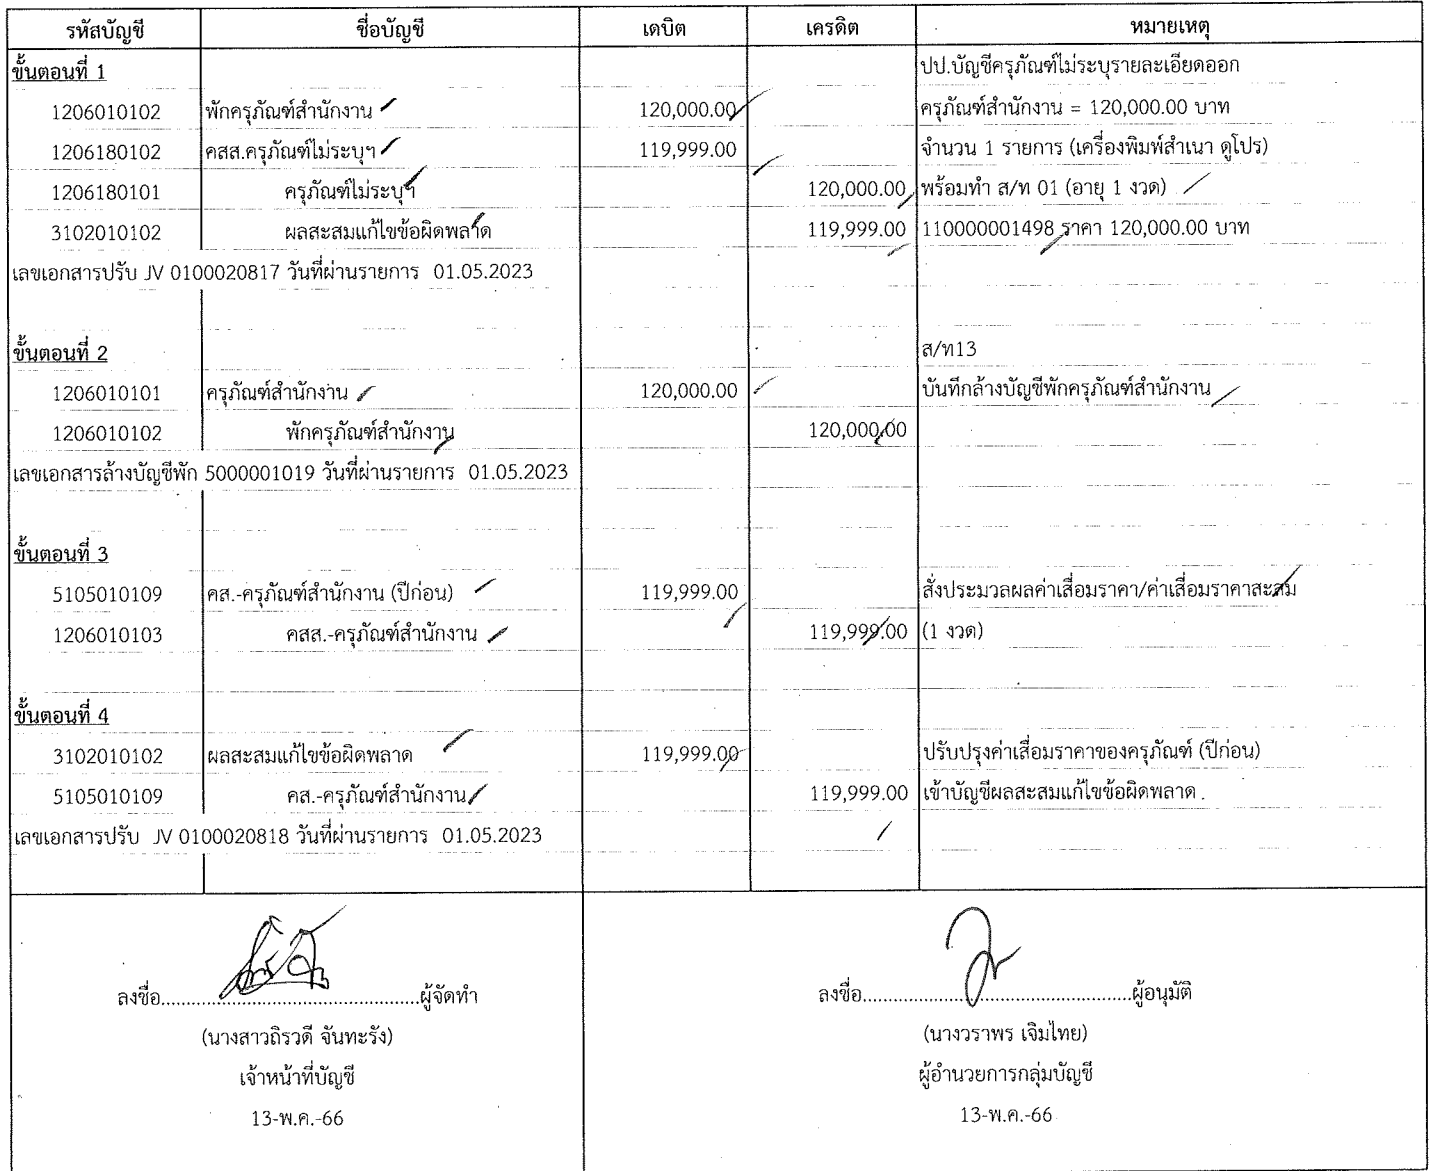 รหัสบัญชี ชื่อบัญชี เดบิต เครดิต หมายเหตุ
ขั้นตอนที่ 1 ปป.บัญชีครุภัณฑ์ไม่ระบุรายละเอียดออก
1206010102 พักครุภัณฑ์สำนักงาน 120,000.00 ครุภัณฑ์สำนักงาน = 120,000.00 บาท
1206180102 คสส.ครุภัณฑ์ไม่ระบุฯ 119,999.00 จำนวน 1 รายการ (เครื่องพิมพ์สำเนา ดูโปร)
1206180101 ครุภัณฑ์ไม่ระบุฯ 120,000.00 พร้อมทำ ส/ท 01 (อายุ 1 งวด)
3102010102 ผลสะสมแก้ไขข้อผิดพลาด 119,999.00 110000001498 ราคา 120,000.00 บาท
เลขเอกสารปรับ JV 0100020817 วันที่ผ่านรายการ 01.05.2023
ขั้นตอนที่ 2 ส/ท13
1206010101 ครุภัณฑ์สำนักงาน 120,000.00 บันทึกล้างบัญชีพักครุภัณฑ์สำนักงาน
1206010102 พักครุภัณฑ์สำนักงาน 120,000.00
เลขเอกสารล้างบัญชีพัก 5000001019 วันที่ผ่านรายการ 01.05.2023
ขั้นตอนที่ 3
5105010109 คส.-ครุภัณฑ์สำนักงาน (ปีก่อน) 119,999.00 สั่งประมวลผลค่าเสื่อมราคา/ค่าเสื่อมราคาสะสม
1206010103 คสส.-ครุภัณฑ์สำนักงาน 119,999.00 (1 งวด)
ขั้นตอนที่ 4
3102010102 ผลสะสมแก้ไขข้อผิดพลาด 119,999.00 ปรับปรุงค่าเสื่อมราคาของครุภัณฑ์ (ปีก่อน)
5105010109 คส.-ครุภัณฑ์สำนักงาน 119,999.00 เข้าบัญชีผลสะสมแก้ไขข้อผิดพลาด
เลขเอกสารปรับ JV 0100020818 วันที่ผ่านรายการ 01.05.2023
ลงชื่อ..............................................ผู้จัดทำ ลงชื่อ..............................................ผู้อนุมัติ
(นางสาวถิรวดี จันทะรัง) (นางวราพร เจิมไทย)
เจ้าหน้าที่บัญชี ผู้อำนวยการกลุ่มบัญชี
13-พ.ค.-66 13-พ.ค.-66